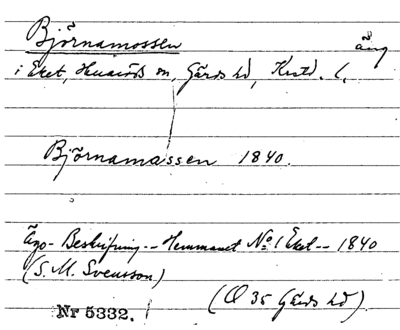 Björnamossen äng
i Eket, Huaröds sn, Gärds hd, Krstd. l.
Björnamassen 1840.
Ägo-Beskrifning -- Hemmanet No 1 Eket -- 1840
(S. M. Svensson)
(O 35 Gärds hd)
Nr 5332.